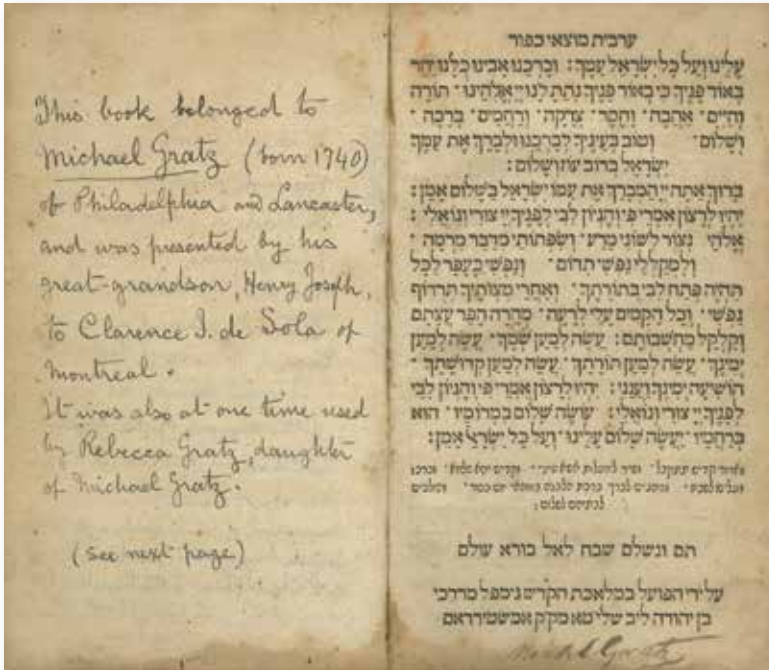 This book belonged to
Michael Gratz (born 1740)
of Philadelphia and Lancaster,
and was presented by his
great-grandson, Henry Joseph,
to Clarence I. de Sola of
Montreal.
It was also at one time used
by Rebecca Gratz, daughter
of Michael Gratz.
(see next page)
ערבית מוצאי כפור
עָלֵינוּ וְעַל כָּל יִשְׂרָאֵל עַמֶּךָ : וּבָרְכֵנוּ אָבִינוּ כֻּלָּנוּ יַחַד
בְּאוֹר פָּנֶיךָ כִּי בְאוֹר פָּנֶיךָ נָתַתָּ לָנוּ יְיָ אֱלֹהֵינוּ · תּוֹרָה
וְחַיִּים · אַהֲבָה · וָחֶסֶד · צְדָקָה · וְרַחֲמִים · בְּרָכָה ·
וְשָׁלוֹם · וְטוֹב בְּעֵינֶיךָ לְבָרְכֵנוּ וּלְבָרֵךְ אֶת עַמְּךָ
יִשְׂרָאֵל בְּרוֹב עוֹז וְשָׁלוֹם :
בָּרוּךְ אַתָּה יְיָ הַמְבָרֵךְ אֶת עַמּוֹ יִשְׂרָאֵל בַּשָּׁלוֹם אָמֵן :
יִהְיוּ לְרָצוֹן אִמְרֵי פִי וְהֶגְיוֹן לִבִּי לְפָנֶיךָ יְיָ צוּרִי וְגוֹאֲלִי :
אֱלֹהַי נְצוֹר לְשׁוֹנִי מֵרָע · וְשִׂפְתוֹתַי מִדַּבֵּר מִרְמָה ·
וְלִמְקַלְלַי נַפְשִׁי תִדּוֹם · וְנַפְשִׁי כֶּעָפָר לַכֹּל
תִּהְיֶה פְּתַח לִבִּי בְּתוֹרָתֶךָ · וְאַחֲרֵי מִצְוֹתֶיךָ תִּרְדּוֹף
נַפְשִׁי · וְכָל הַקָּמִים עָלַי לְרָעָה · מְהֵרָה הָפֵר עֲצָתָם
וְקַלְקֵל מַחְשְׁבוֹתָם : עֲשֵׂה לְמַעַן שְׁמָךְ · עֲשֵׂה לְמַעַן
יְמִינָךְ · עֲשֵׂה לְמַעַן תּוֹרָתָךְ · עֲשֵׂה לְמַעַן קְדוּשָּׁתָךְ ·
הוֹשִׁיעָה יְמִינְךָ וַעֲנֵנִי : יִהְיוּ לְרָצוֹן אִמְרֵי פִי וְהֶגְיוֹן לִבִּי
לְפָנֶיךָ יְיָ צוּרִי וְגוֹאֲלִי : עוֹשֶׂה שָׁלוֹם בִּמְרוֹמָיו · הוּא
בְּרַחֲמָיו · יַעֲשֶׂה שָׁלוֹם עָלֵינוּ · וְעַל כָּל יִשְׂרָאֵל אָמֵן :
לבתיהם לשלום :
תם ונשלם שבח לאל בורא עולם
על ידי הפועל במלאכת הקדש גימפל מרדכי
בן יהודה ליב של"י טא מק"ק אמשטירדאם
Michael Gratz